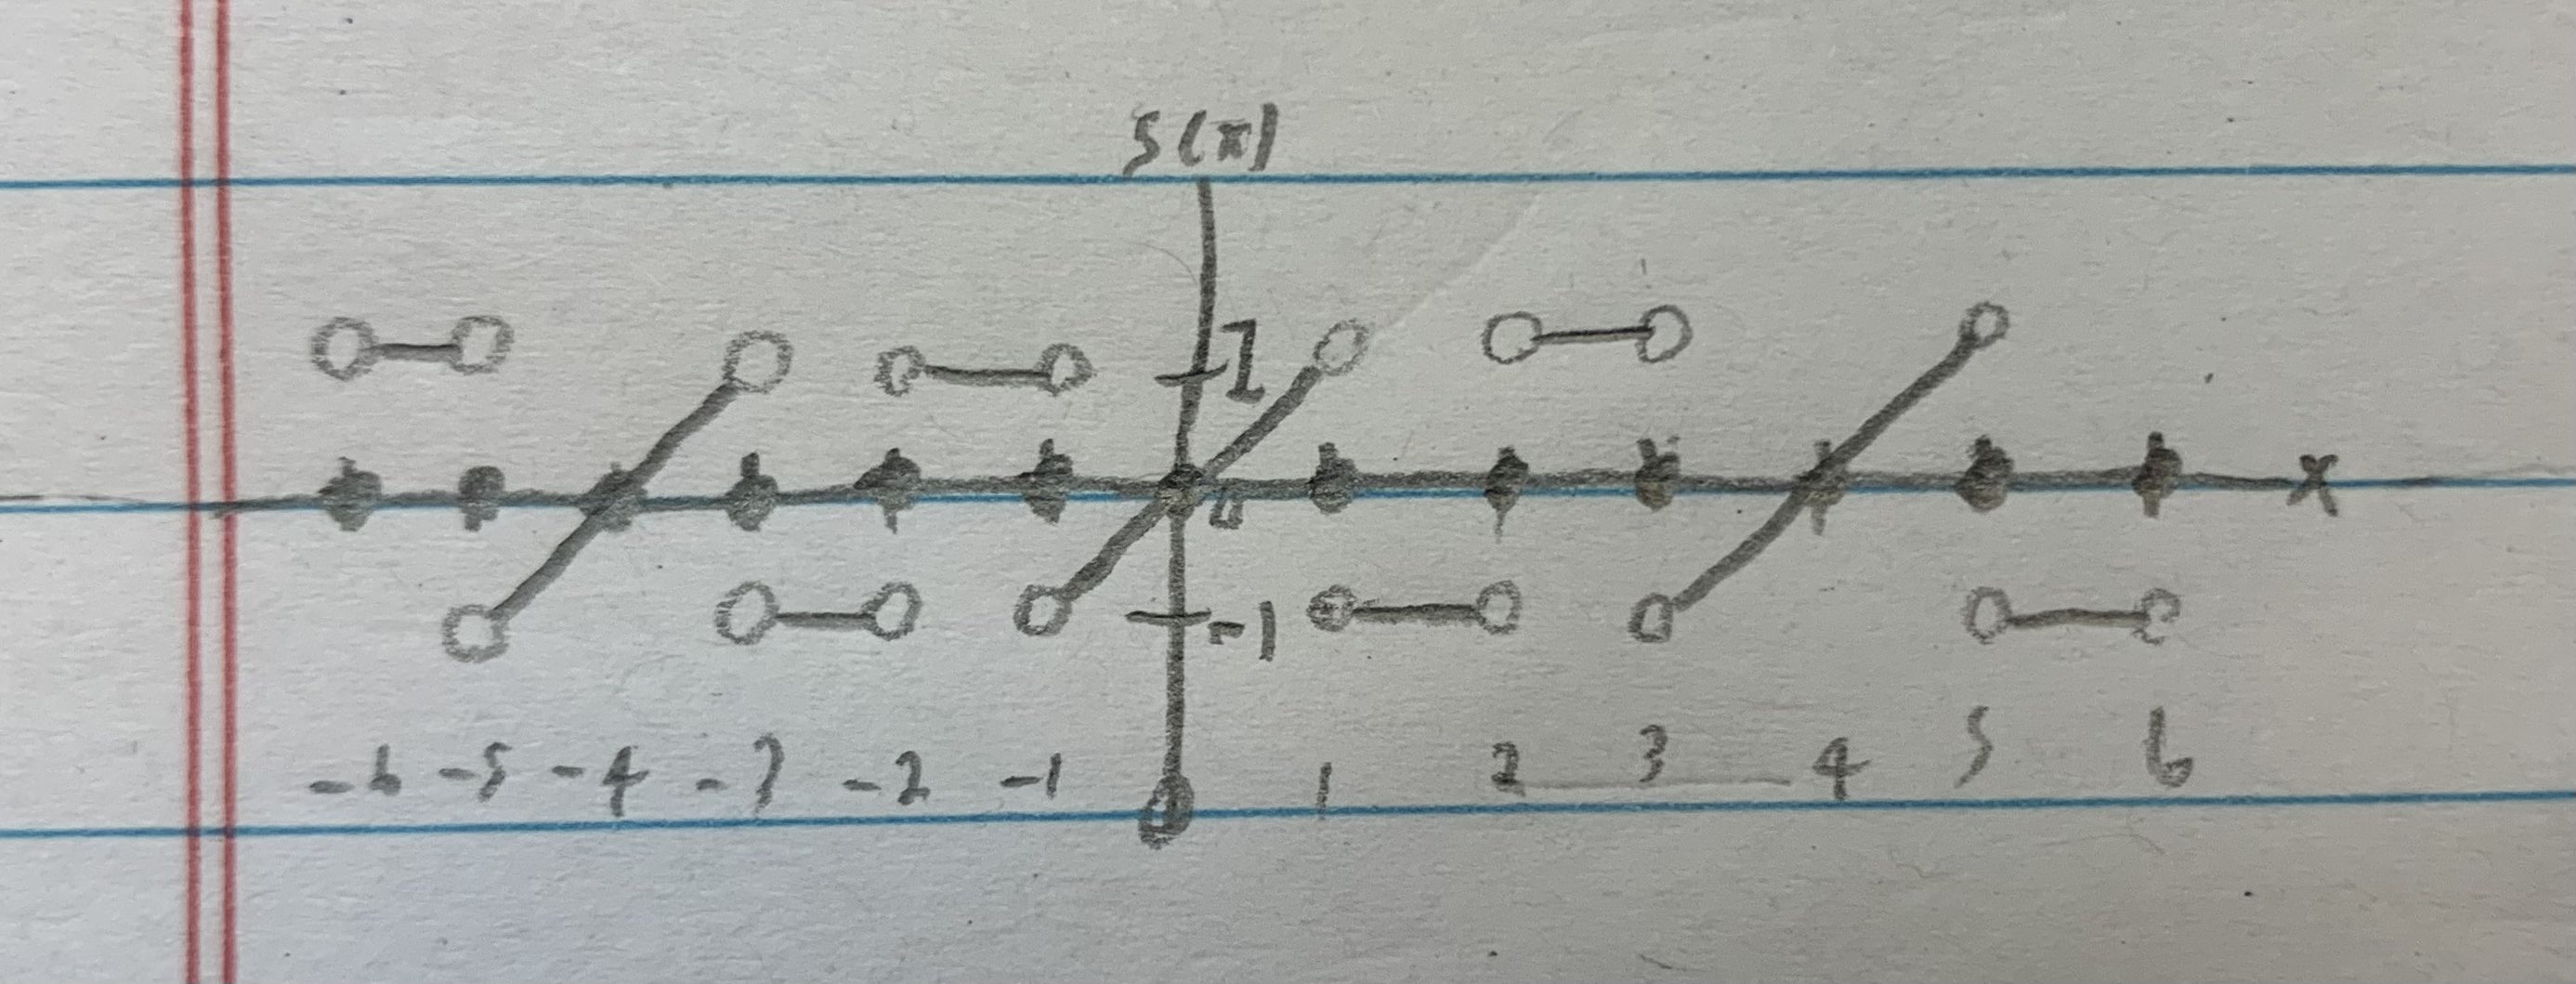 S(x)
1
x
0
-1
-6 -5 -4 -3 -2 -1 1 2 3 4 5 6